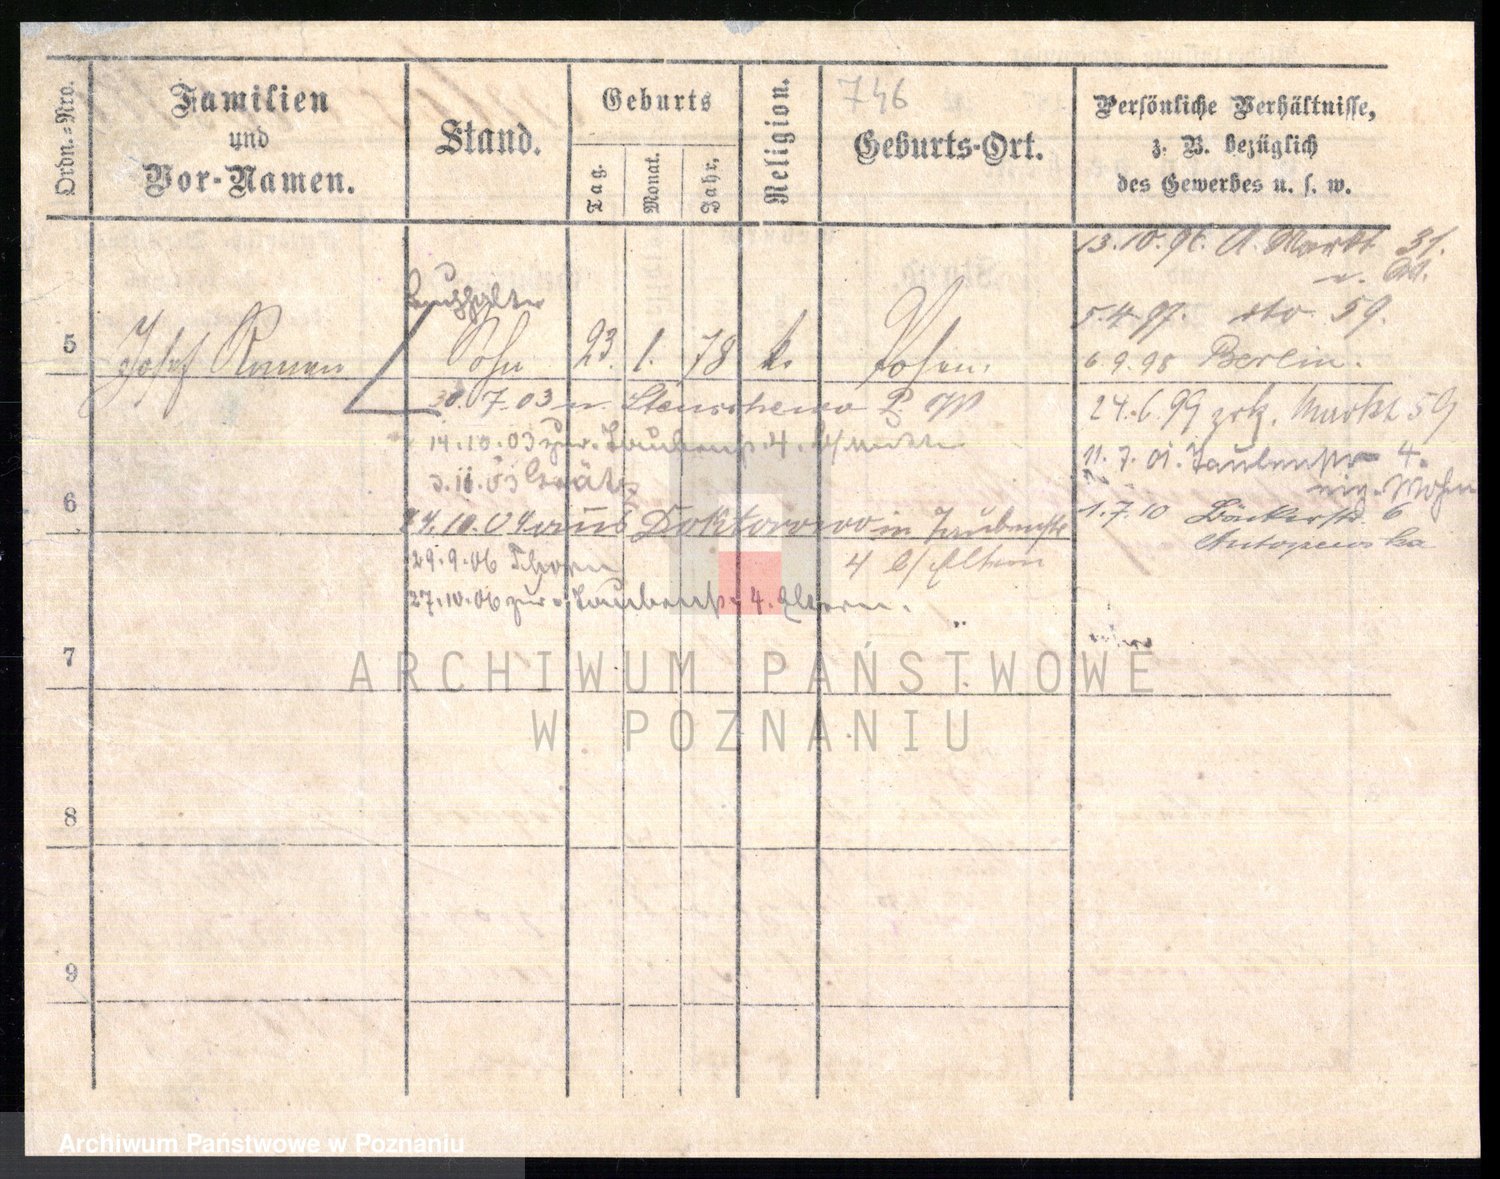 Ordn.=Nro.
Familien
und
Vor-Namen.
Stand.
Geburts
Tag.
Monat.
Jahr.
Religion.
746
Geburts-Ort.
Persönliche Verhältnisse,
z. B. bezüglich
des Gewerbes u. s. w.
13.10.96. A. Markt 31.
5.4.97. dto 59.
6.9.98 Berlin.
24.6.99 zrk. Markt 59
11.7.01. Taubenstr 4.
Wohn
1.7.10 Bäckerstr. 6
Buchhalter
5
Josef Roman
Sohn
23.
1.
78
k.
Posen.
30.7.03 n. Stenschewo
14.10.03 zur. Taubenstr. 4.
3.11.03 Grätz
6
24.10.04 aus Doktorowo in Taubenstr
4 b/ Eltern
29.9.06 Thorn
27.10.06 zur. Taubenstr. 4. Eltern.
7
8
9
ARCHIWUM PAŃSTWOWE
W POZNANIU
Archiwum Państwowe w Poznaniu